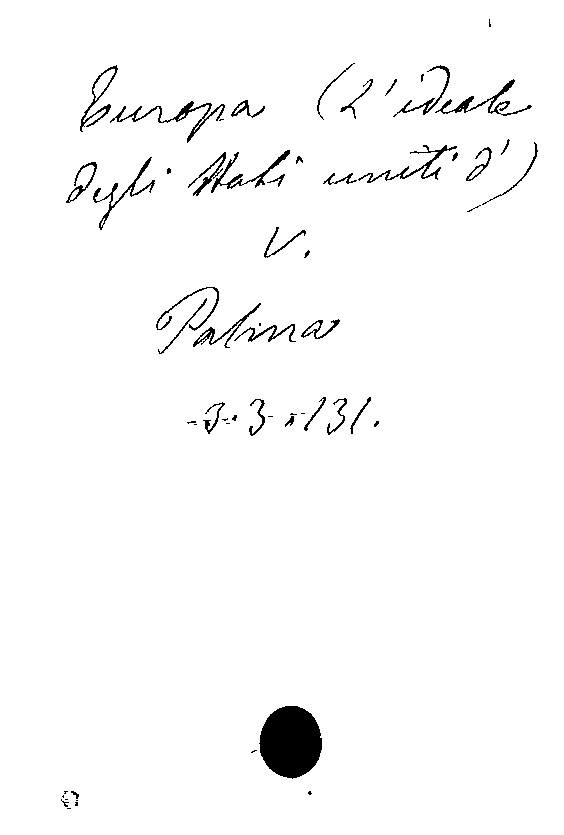 Europa (L'ideale
degli Stati uniti d')
V.
Palma
-3.-3-131.